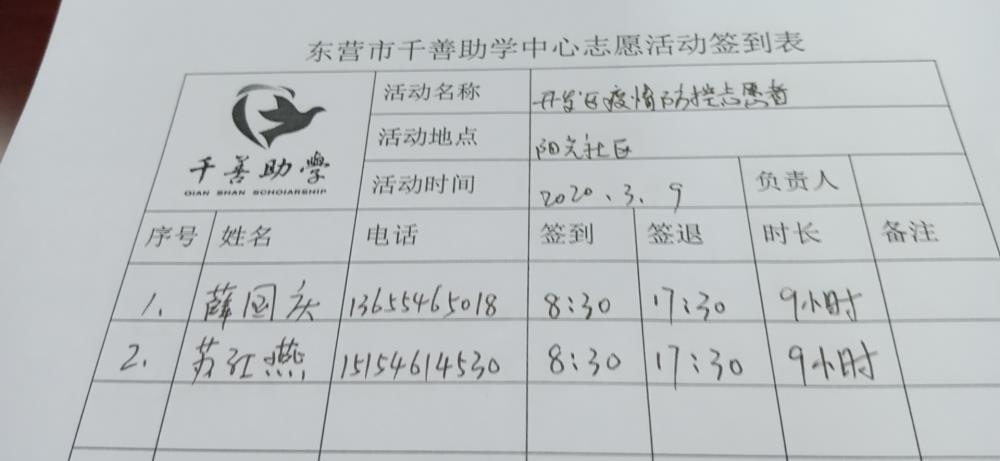 东营市千善助学中心志愿活动签到表
千善助学
QIAN SHAN SCHOLARSHIP
活动名称 开发区疫情防控志愿者
活动地点 阳光社区
活动时间 2020.3.9 负责人
序号 姓名 电话 签到 签退 时长 备注
1. 薛国庆 13655465018 8:30 17:30 9小时
2. 苏红燕 15154614530 8:30 17:30 9小时